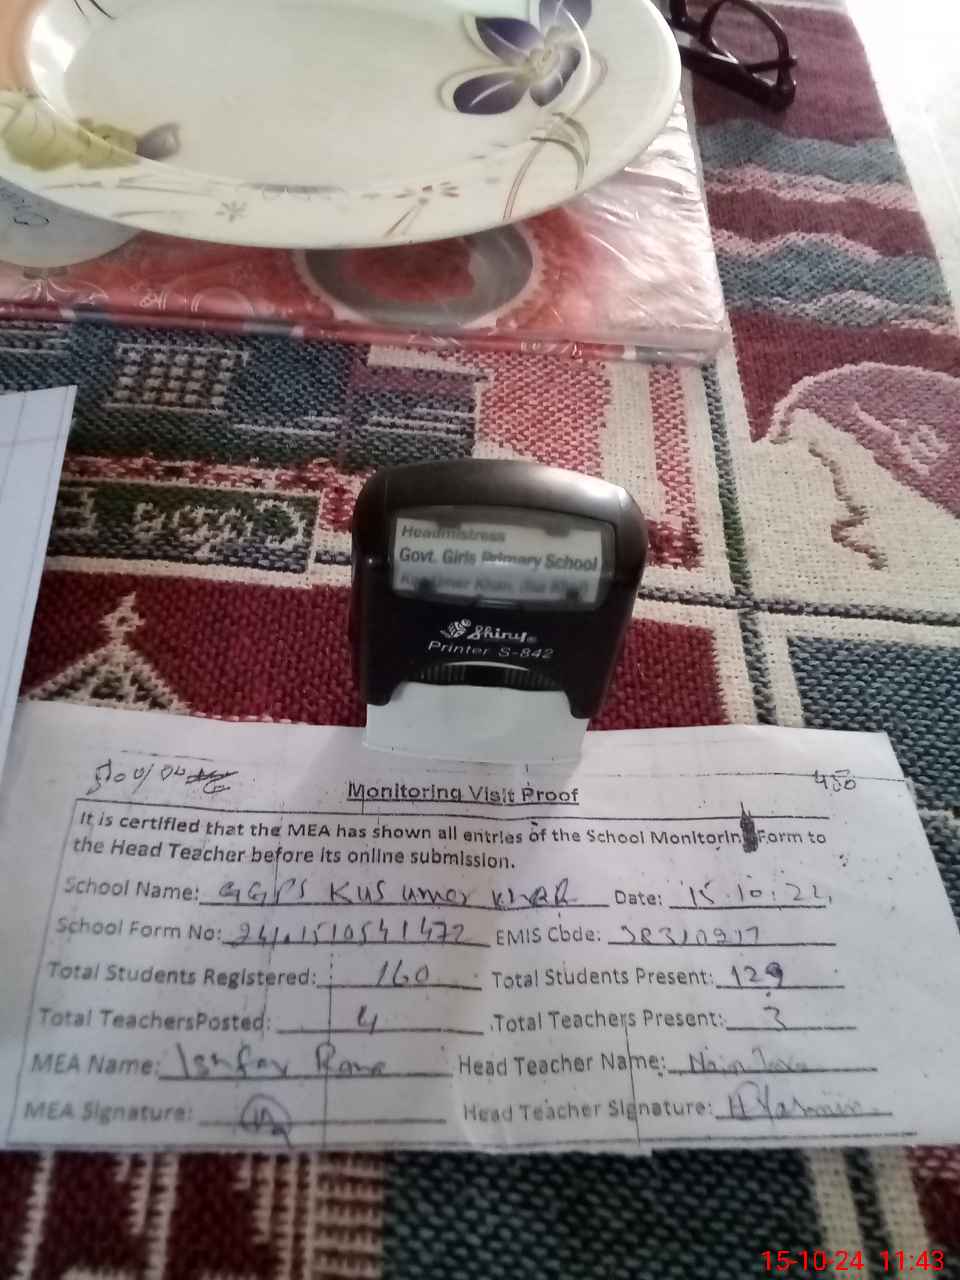 Headmistress
Govt. Girls Primary School
Shiny
Printer S-842
Monitoring Visit Proof
It is certified that the MEA has shown all entries of the School Monitoring Form to
the Head Teacher before its online submission.
School Name: GGPS Kus umer Date: 15.10.24
School Form No: EMIS Code:
Total Students Registered: 160 Total Students Present: 129
Total Teachers Posted: 4 Total Teachers Present: 3
MEA Name: Ishfaq Rana Head Teacher Name:
MEA Signature: Head Teacher Signature: H Yasmin
15-10-24 11:43